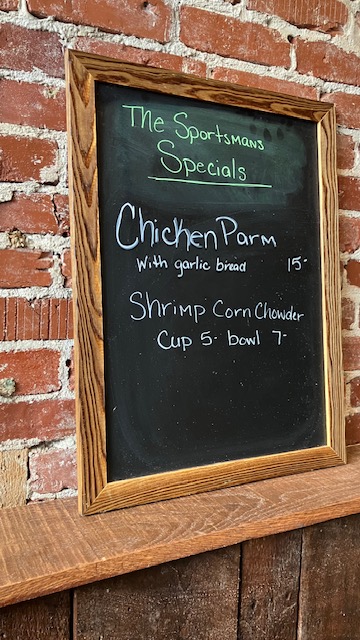 The Sportsmans
Specials
Chicken Parm
with garlic bread 15-
Shrimp Corn Chowder
Cup 5- bowl 7-